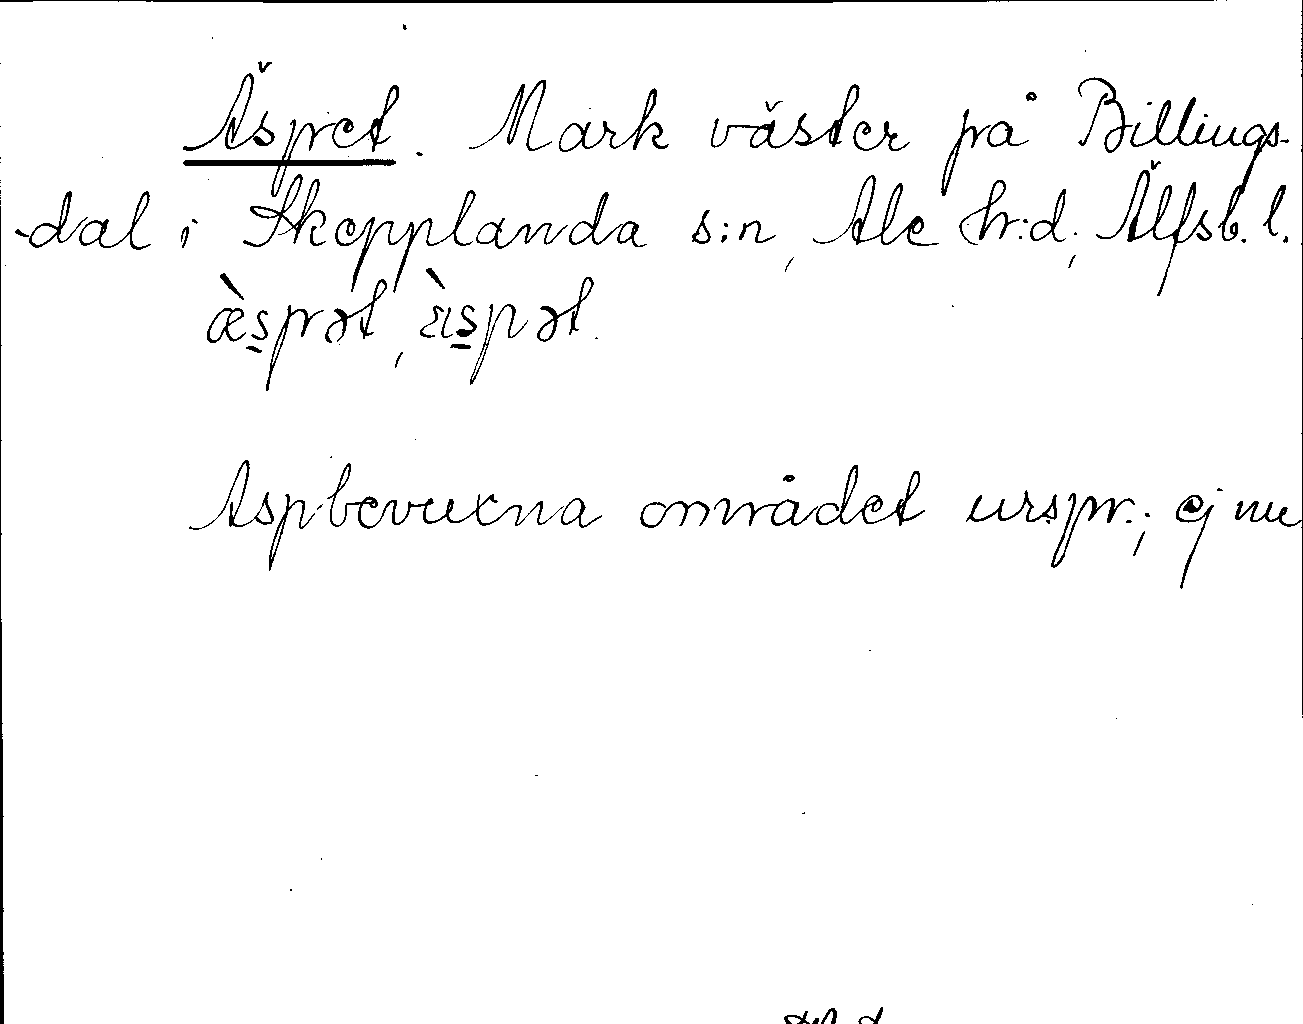 Äspet. Mark väster på Billings-
dal i Skepplanda s:n, Ale h:d, Älfsb. l.
æ̀s̠pət, ä̀s̠pət.
Aspbevuxna området urspr.; ej nu